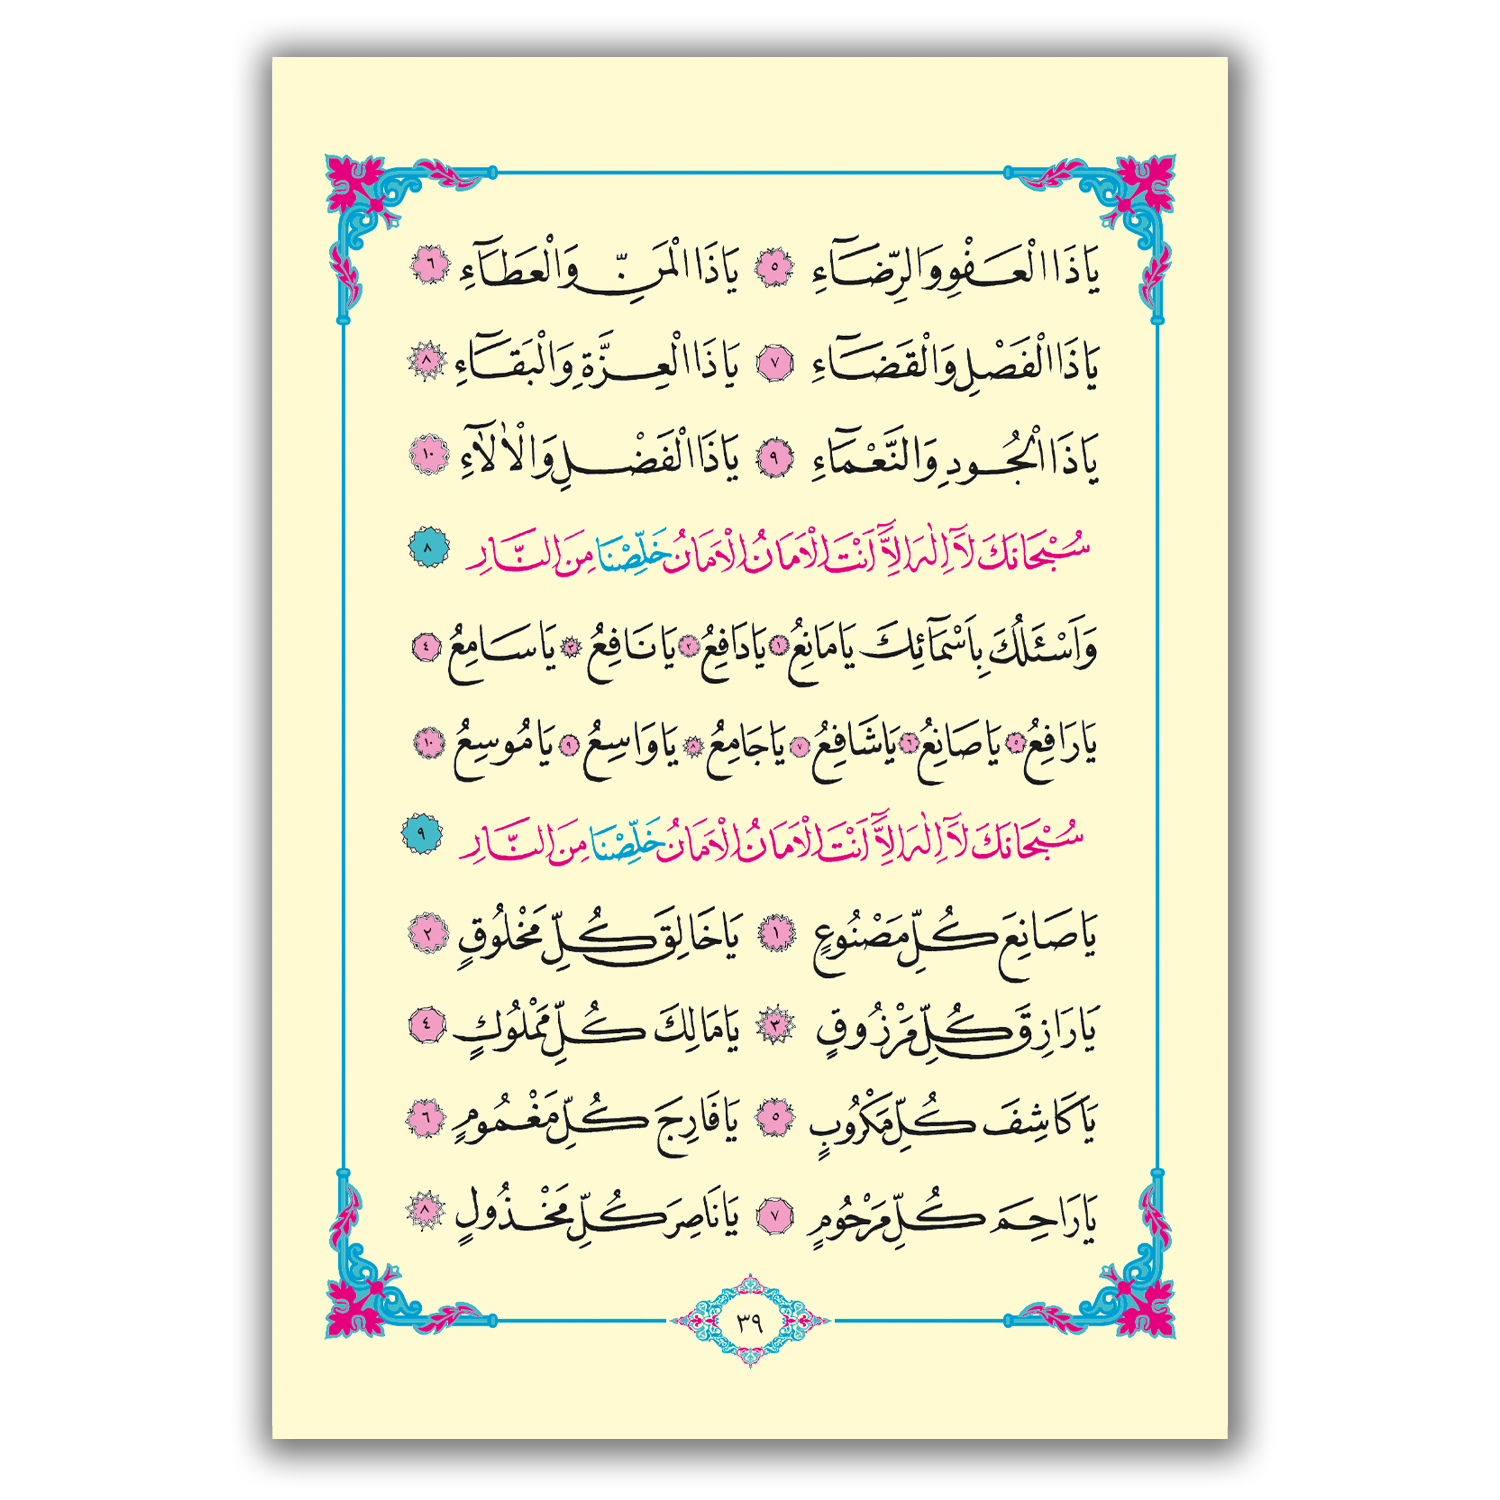 يَاذَا الْعَفْوِ وَالرِّضَاءِ ٥ يَاذَا الْمَنِّ وَالْعَطَاءِ ٦
يَاذَا الْفَصْلِ وَالْقَضَاءِ ٧ يَاذَا الْعِزَّةِ وَالْبَقَاءِ ٨
يَاذَا الْجُودِ وَالنَّعْمَاءِ ٩ يَاذَا الْفَضْلِ وَالْاٰلَاءِ ١٠
سُبْحَانَكَ لَآ اِلٰهَ اِلَّا اَنْتَ الْاَمَانُ الْاَمَانُ خَلِّصْنَا مِنَ النَّارِ ٨
وَاَسْئَلُكَ بِاَسْمَآئِكَ يَامَانِعُ ١ يَادَافِعُ ٢ يَانَافِعُ ٣ يَاسَامِعُ ٤
يَارَافِعُ ٥ يَاصَانِعُ ٦ يَاشَافِعُ ٧ يَاجَامِعُ ٨ يَاوَاسِعُ ٩ يَامُوسِعُ ١٠
سُبْحَانَكَ لَآ اِلٰهَ اِلَّا اَنْتَ الْاَمَانُ الْاَمَانُ خَلِّصْنَا مِنَ النَّارِ ٩
يَاصَانِعَ كُلِّ مَصْنُوعٍ ١ يَاخَالِقَ كُلِّ مَخْلُوقٍ ٢
يَارَازِقَ كُلِّ مَرْزُوقٍ ٣ يَامَالِكَ كُلِّ مَمْلُوكٍ ٤
يَاكَاشِفَ كُلِّ مَكْرُوبٍ ٥ يَافَارِجَ كُلِّ مَغْمُومٍ ٦
يَارَاحِمَ كُلِّ مَرْحُومٍ ٧ يَانَاصِرَ كُلِّ مَخْذُولٍ ٨
٣٩